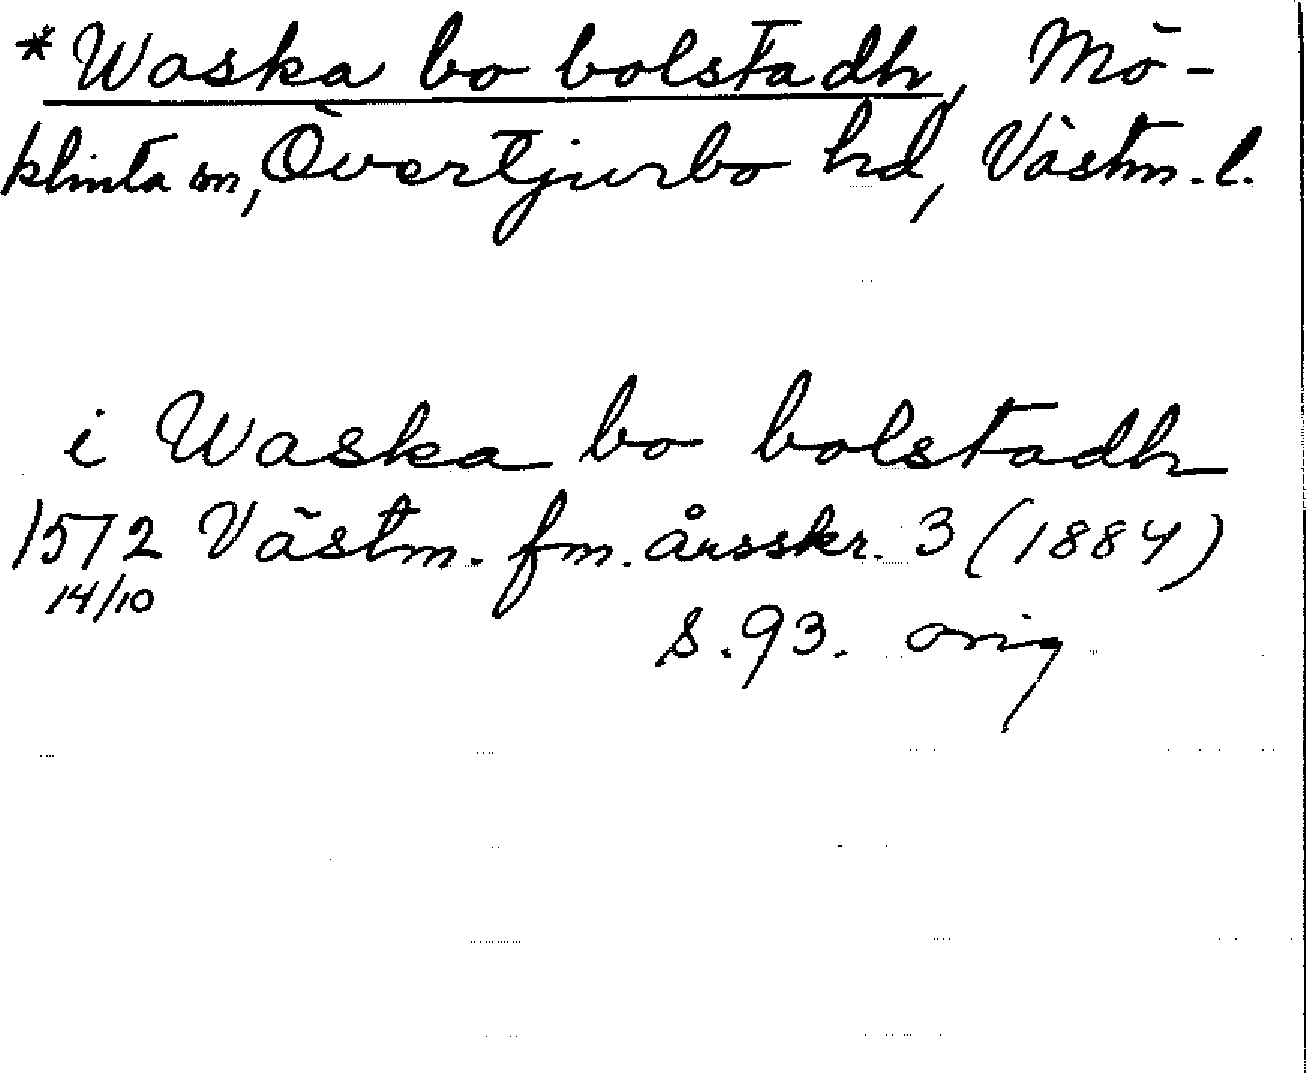 *Waska bo bolstadh, Mö-
klinta sn, Övertjurbo hd, Västm. l.
i Waska bo bolstadh
1572 Västm. fm. årsskr. 3 (1884)
14/10
s. 93. orig